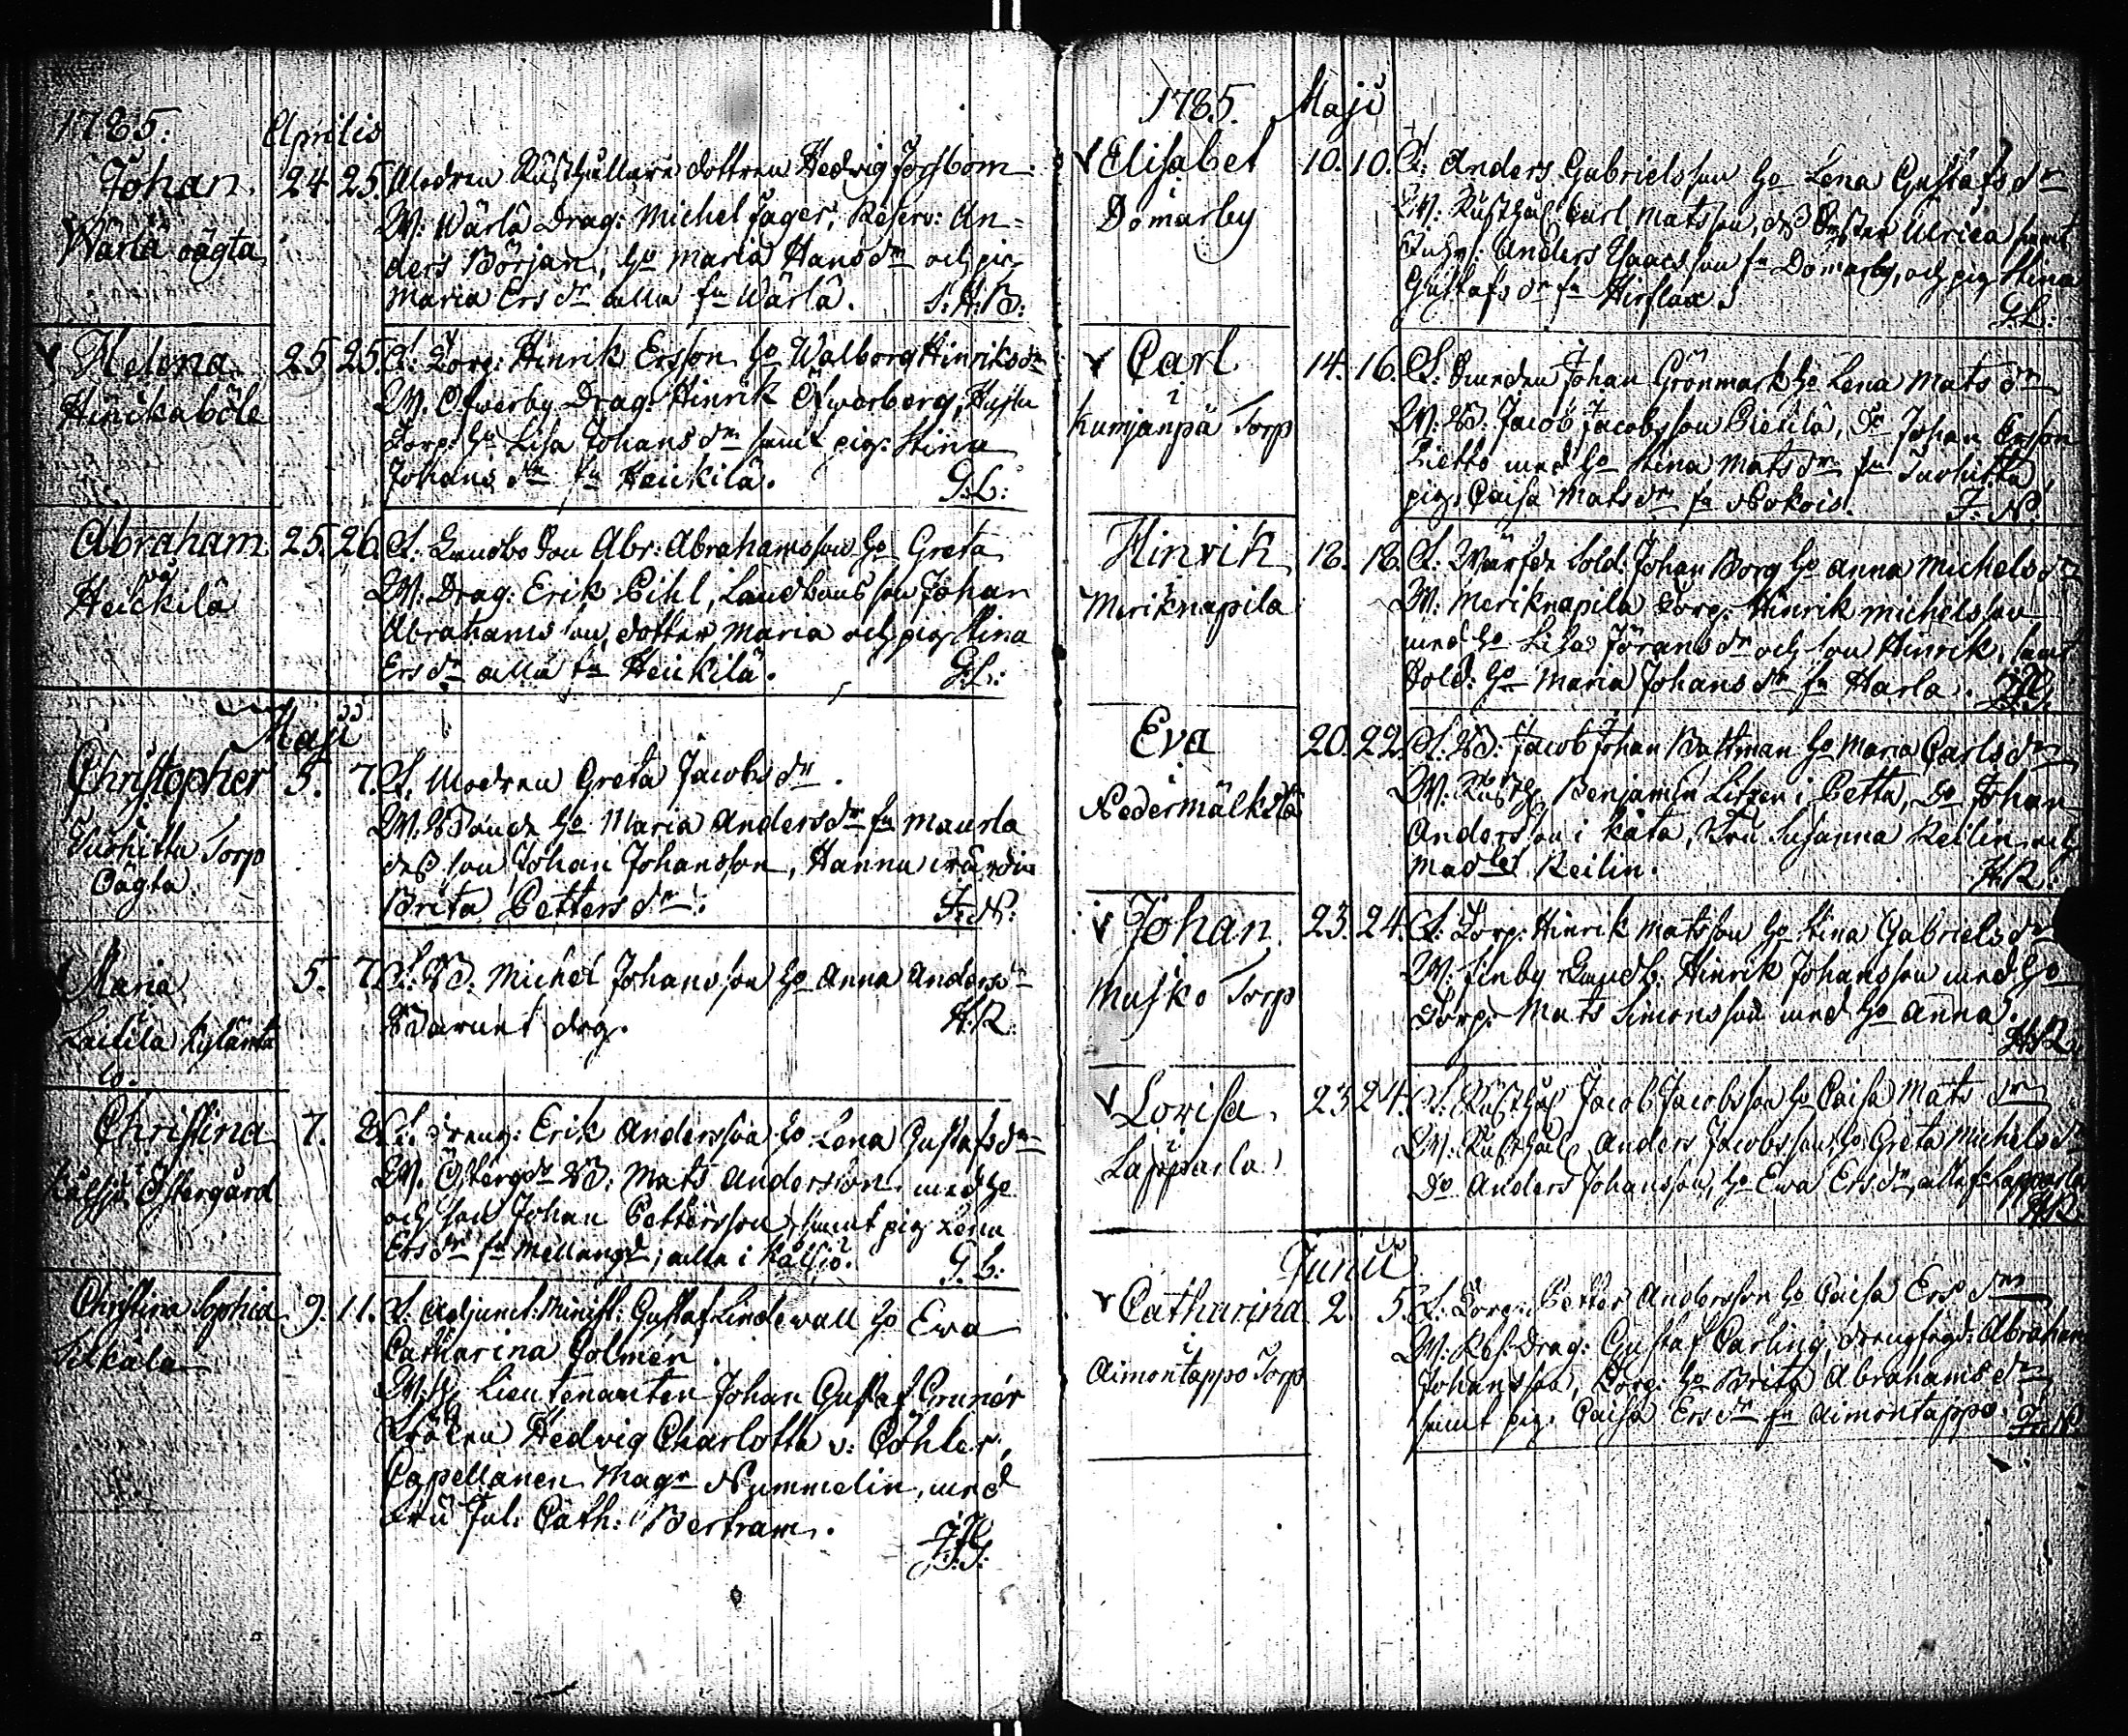 1785.
Aprilis
Johan
Wärlä oägta
24 25. Modren Rusthållare dottren Hedvig Forsbom.
W. Wärlä Drag: Michel Jager, Reserv: An-
ders Början, ho Maria Hansdr och pig
Maria Ersdr alla fr Wärlä. S.H.B:
Helena
Hinikaböle
25 25. F. Torp: Hinrik Ersson ho Walborg Hinriksdr
W. Öfwerby Drag: Hinrik Öfwerberg,
Torp: ho Lisa Johansdr samt pig: Stina
Johansdr fr Heickilä. G.L:
Abraham
på
Heickilä
25. 26. F. Landbo Abr: Abrahamsson ho Greta
W: Drag: Erik Pihl, Landbons son Johan
Abrahamsson, dotter Maria och pig Stina
Ersdr alla fr Heickilä. G.L:
Maji
Christopher
i
Turhitta Torp
Oägta
5. 7. F. Modren Greta Jacobsdr.
W. Bonde ho Maria Andersdr fr Maurla
des son Johan Johansson, Hannu
Brita Pettersdr. F.N:
Maria
Laitila Kylänta
5. 7. F. B. Michel Johansson ho Anna Andersdr
Barnet H.R:
Christina
i
Kälsjö Östergård
7. 8. F. Dreng: Erik Andersson ho Lena Gustafsdr
W. Östergdr B. Mats Andersson med ho
och son Johan Pettersson, samt pig Lena
Ersdr fr Mellangd, alla i Kälsjö. G.L:
Christina Sophia
Silkala
9. 11. F. Adjunct: Minist: Gustaf Lindewall ho Ewa
Catharina Polmén.
W: H Lieutenanten Johan Gustaf Brunér
Fröken Hedvig Charlotta v: Cöhler,
Capellanen Magr Nummelin, med
Fru Jul: Cath: Bertram.
1785. Maji
Elisabet
Domarby
10. 10. F: Anders Gabrielsson ho Lena Gustafsdr
W: Rusthål Carl Matsson, ds Syster Ulrica samt
Anders Isaacsson fr Domarby, och pig Stina
Gustafsdr fr Hirslax. G.L:
Carl
i
Kumjänpä Torp
14. 16. F: Smeden Johan Grönmark ho Lena Matsdr
W: B. Jacob Jacobsson Pietilä, Do Johan Ersson
Lietto med ho Stina Matsdr fr Turhitta,
pig: Caisa Matsdr fr Nokois. F.N.
Hinrik
i
Meriknapila
18. 18. F. Wärfde Sold: Johan Borg ho Anna Michelsdr
W: Meriknapila Torp: Hinrik Michelsson
med ho Lisa Jöransdr och son Hinrik, samt
Sold: ho Maria Johansdr fr Harla.
Eva
i
Nedermälkilä
20. 22. F. B: Jacob Johan Bastman ho Maria Carlsdr
W: Rusth Benjamin Litzen i Betta, Do Johan
Andersson i Kåta, Fru Susanna Keilin och
Madlle Keilin. H.R:
Johan
i
Musko Torp
23. 24. F: Torp: Hinrik Matsson ho Stina Gabrielsdr
W: Finby Landb: Hinrik Johansson med ho
Torp: Mats Simonsson med ho Anna. H.R.
Lovisa
i
Lapparla
23 24. F. Rusthål Jacob Jacobsson ho Caisa Matsdr
W: Rusthål Anders Jacobsson, ho Greta Michelsdr
Do Anders Johansson, ho Ewa Ersdr, alla fr Lapparla
H.R.
Junii
Catharina
i
Aimontappo Torp
2. 5. F. Torp: Petter Andersson ho Caisa Ersdr
W: Drag: Gustaf Carling, Abraham
Johansson, Torp: ho Brita Abrahamsdr
samt pig: Caisa Ersdr fr Aimontappo. F.N.